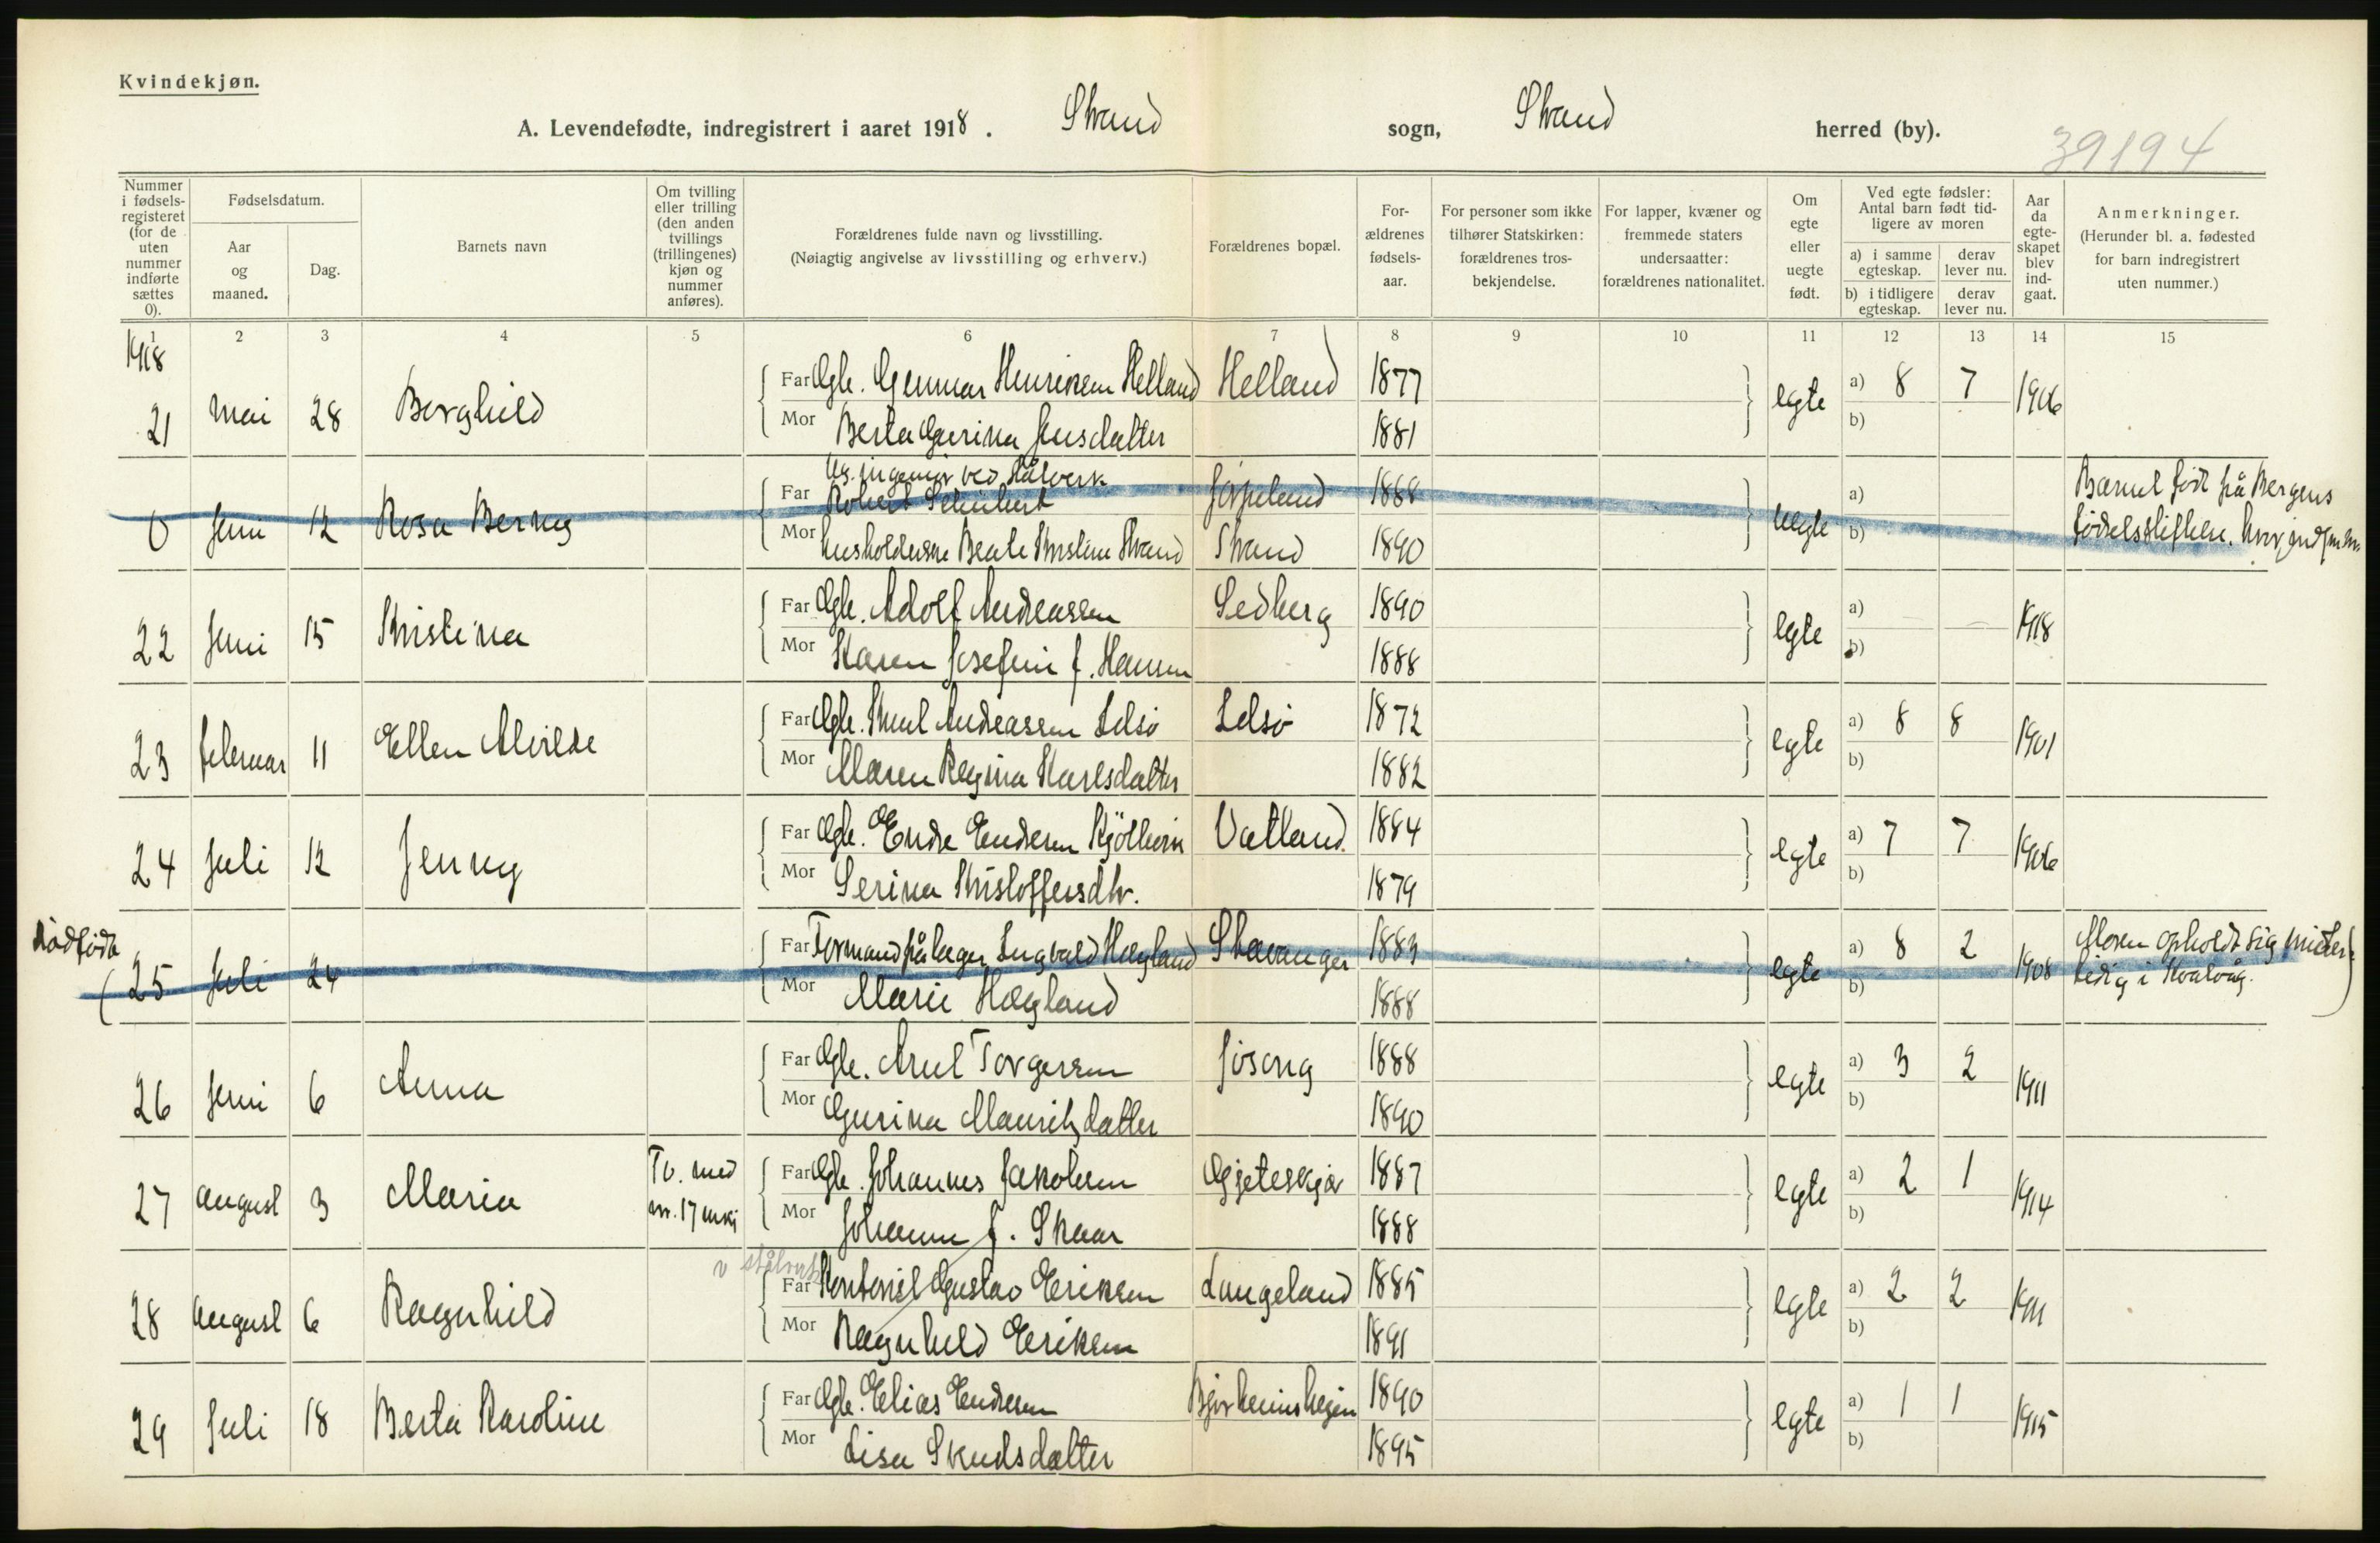 Kvindekjøn.
A. Levendefødte, indregistrert i aaret 1918. Strand sogn, Strand herred (by).
39194
Nummer i fødsels-registeret (for de uten nummer indførte sættes 0).
Fødselsdatum.
Aar og maaned.
Dag.
Barnets navn
Om tvilling eller trilling (den anden tvillings (trillingenes) kjøn og nummer anføres).
Forældrenes fulde navn og livsstilling.
(Nøiagtig angivelse av livsstilling og erhverv.)
Forældrenes bopæl.
For-ældrenes fødsels-aar.
For personer som ikke tilhører Statskirken: forældrenes tros-bekjendelse.
For lapper, kvæner og fremmede staters undersaatter: forældrenes nationalitet.
Om egte eller uegte født.
Ved egte fødsler: Antal barn født tid-ligere av moren
a) i samme egteskap. derav lever nu.
b) i tidligere egteskap. derav lever nu.
Aar da egte-skapet blev ind-gaat.
Anmerkninger.
(Herunder bl. a. fødested for barn indregistrert uten nummer.)
1 2 3 4 5 6 7 8 9 10 11 12 13 14 15
1918
21 Mai 28 Borghild Far Gbr. Gunnar Henriksen Helland Helland 1877 egte a) 8 7 1906
Mor Berta Gurina Jensdatter 1881 b)
Ug. ingeniør ved Stålverk
0 Juni 12 Rosa Berny Far Robert Jørpeland 1888 uegte a) Barnet født på Bergens
Mor husholderske Beate Kristine Strand Strand 1890 b) fødselsstiftelse.
22 Juni 15 Kristina Far Gbr. Adolf Andreassen Sedberg 1890 egte a) — — 1918
Mor Karen Josefine f. Hansen 1888 b)
23 februar 11 Ellen Alvilde Far Gbr. Knut Andreassen Idsø Idsø 1872 egte a) 8 8 1901
Mor Maren Regina Karlsdatter 1882 b)
24 Juli 12 Jenny Far Gbr. Endre Endresen Vatland 1884 egte a) 7 7 1906
Mor Serina Kristoffersdtr. 1879 b)
dødfødt
(25 Juli 24 Far Formand på lager Ingvald Høgland Stavanger 1883 egte a) 8 2 1908 Moren opholdt sig midler-
Mor Marie Høgland 1888 b) tidig i Kvalvåg.)
26 Juni 6 Anna Far Gbr. Torgersen Jøsang 1888 egte a) 3 2 1911
Mor Gurina Mauritzdatter 1890 b)
27 August 3 Maria Tv. med nr. 17 mkj Far Gbr. Johannes Jakobsen Gjeteskjær 1887 egte a) 2 1 1914
Mor Johanne f. Skaar 1888 b)
v stålverk
28 August 6 Ragnhild Far Kontorist Gustav Eriksen Langeland 1885 egte a) 2 2 1911
Mor Ragnhild Eriksen 1891 b)
29 Juli 18 Berta Karoline Far Gbr. Elias Endresen Bjørheimsheien 1890 egte a) 1 1 1915
Mor Lisa Knudsdatter 1895 b)